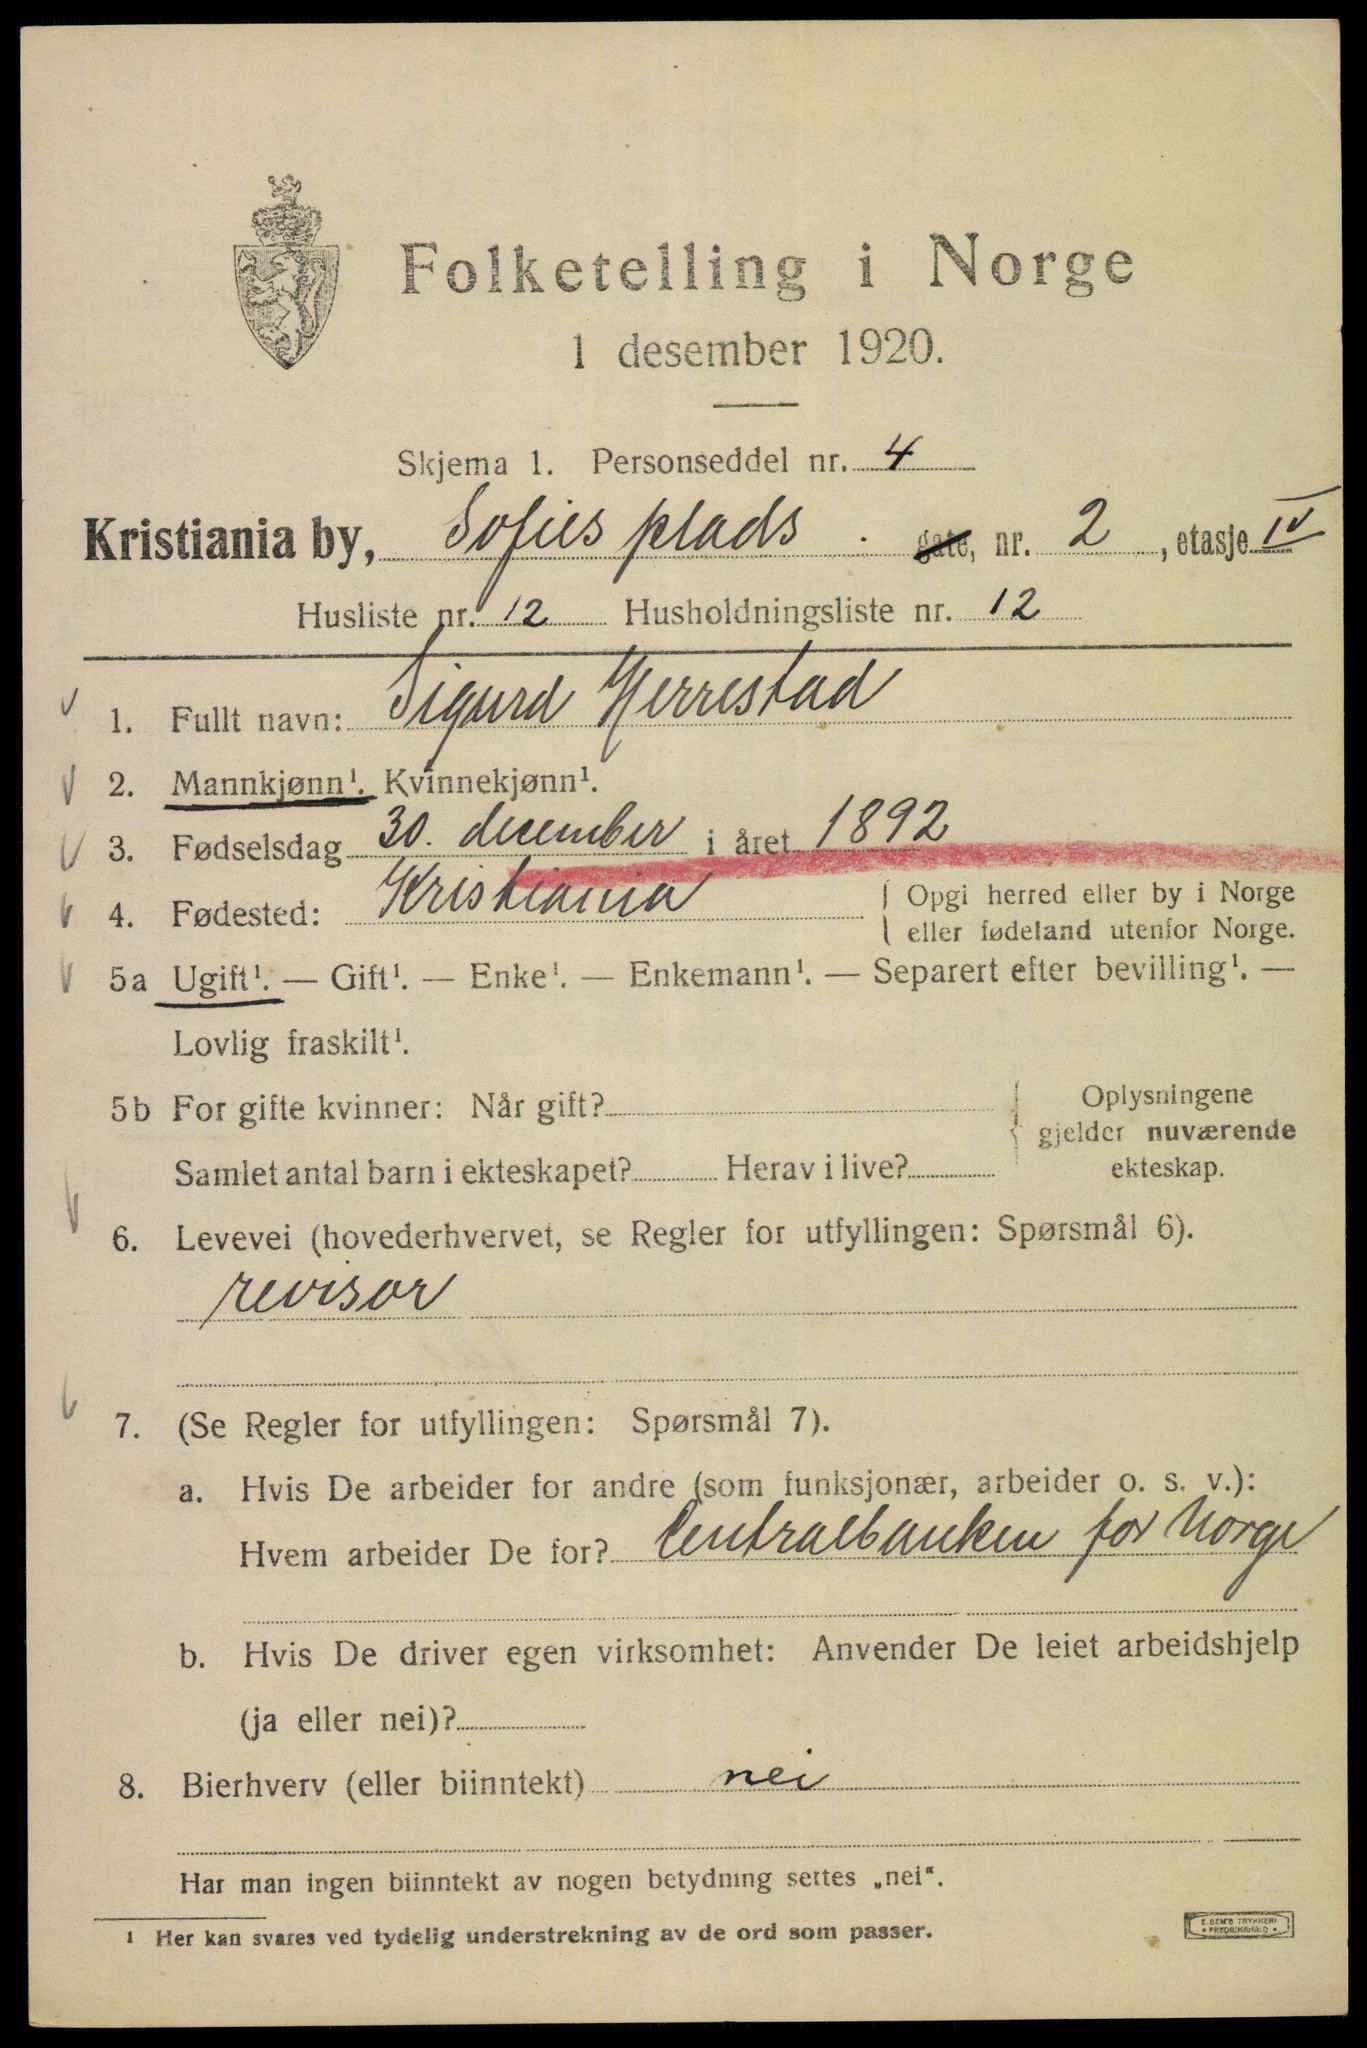 Folketelling i Norge
1 desember 1920.
Skjema 1. Personseddel nr. 4
Kristiania by, Sofies plads . gate, nr. 2, etasje IV
Husliste nr. 12 Husholdningsliste nr. 12
1. Fullt navn: Sigurd Herrestad
2. Mannkjønn¹. Kvinnekjønn¹.
3. Fødselsdag 30. december i året 1892
4. Fødested: Kristiania { Opgi herred eller by i Norge
eller fødeland utenfor Norge.
5a Ugift¹. — Gift¹. — Enke¹. — Enkemann¹. — Separert efter bevilling¹. —
Lovlig fraskilt¹.
5b For gifte kvinner: Når gift? { Oplysningene
gjelder nuværende
Samlet antal barn i ekteskapet? Herav i live? ekteskap.
6. Levevei (hovederhvervet, se Regler for utfyllingen: Spørsmål 6).
revisor
7. (Se Regler for utfyllingen: Spørsmål 7).
a. Hvis De arbeider for andre (som funksjonær, arbeider o. s. v.):
Hvem arbeider De for? Centralbanken for Norge
b. Hvis De driver egen virksomhet: Anvender De leiet arbeidshjelp
(ja eller nei)?
8. Bierhverv (eller biinntekt) nei
Har man ingen biinntekt av nogen betydning settes „nei“.
¹ Her kan svares ved tydelig understrekning av de ord som passer.
E. SEM'S TRYKKERI
• FREDRIKSHALD •